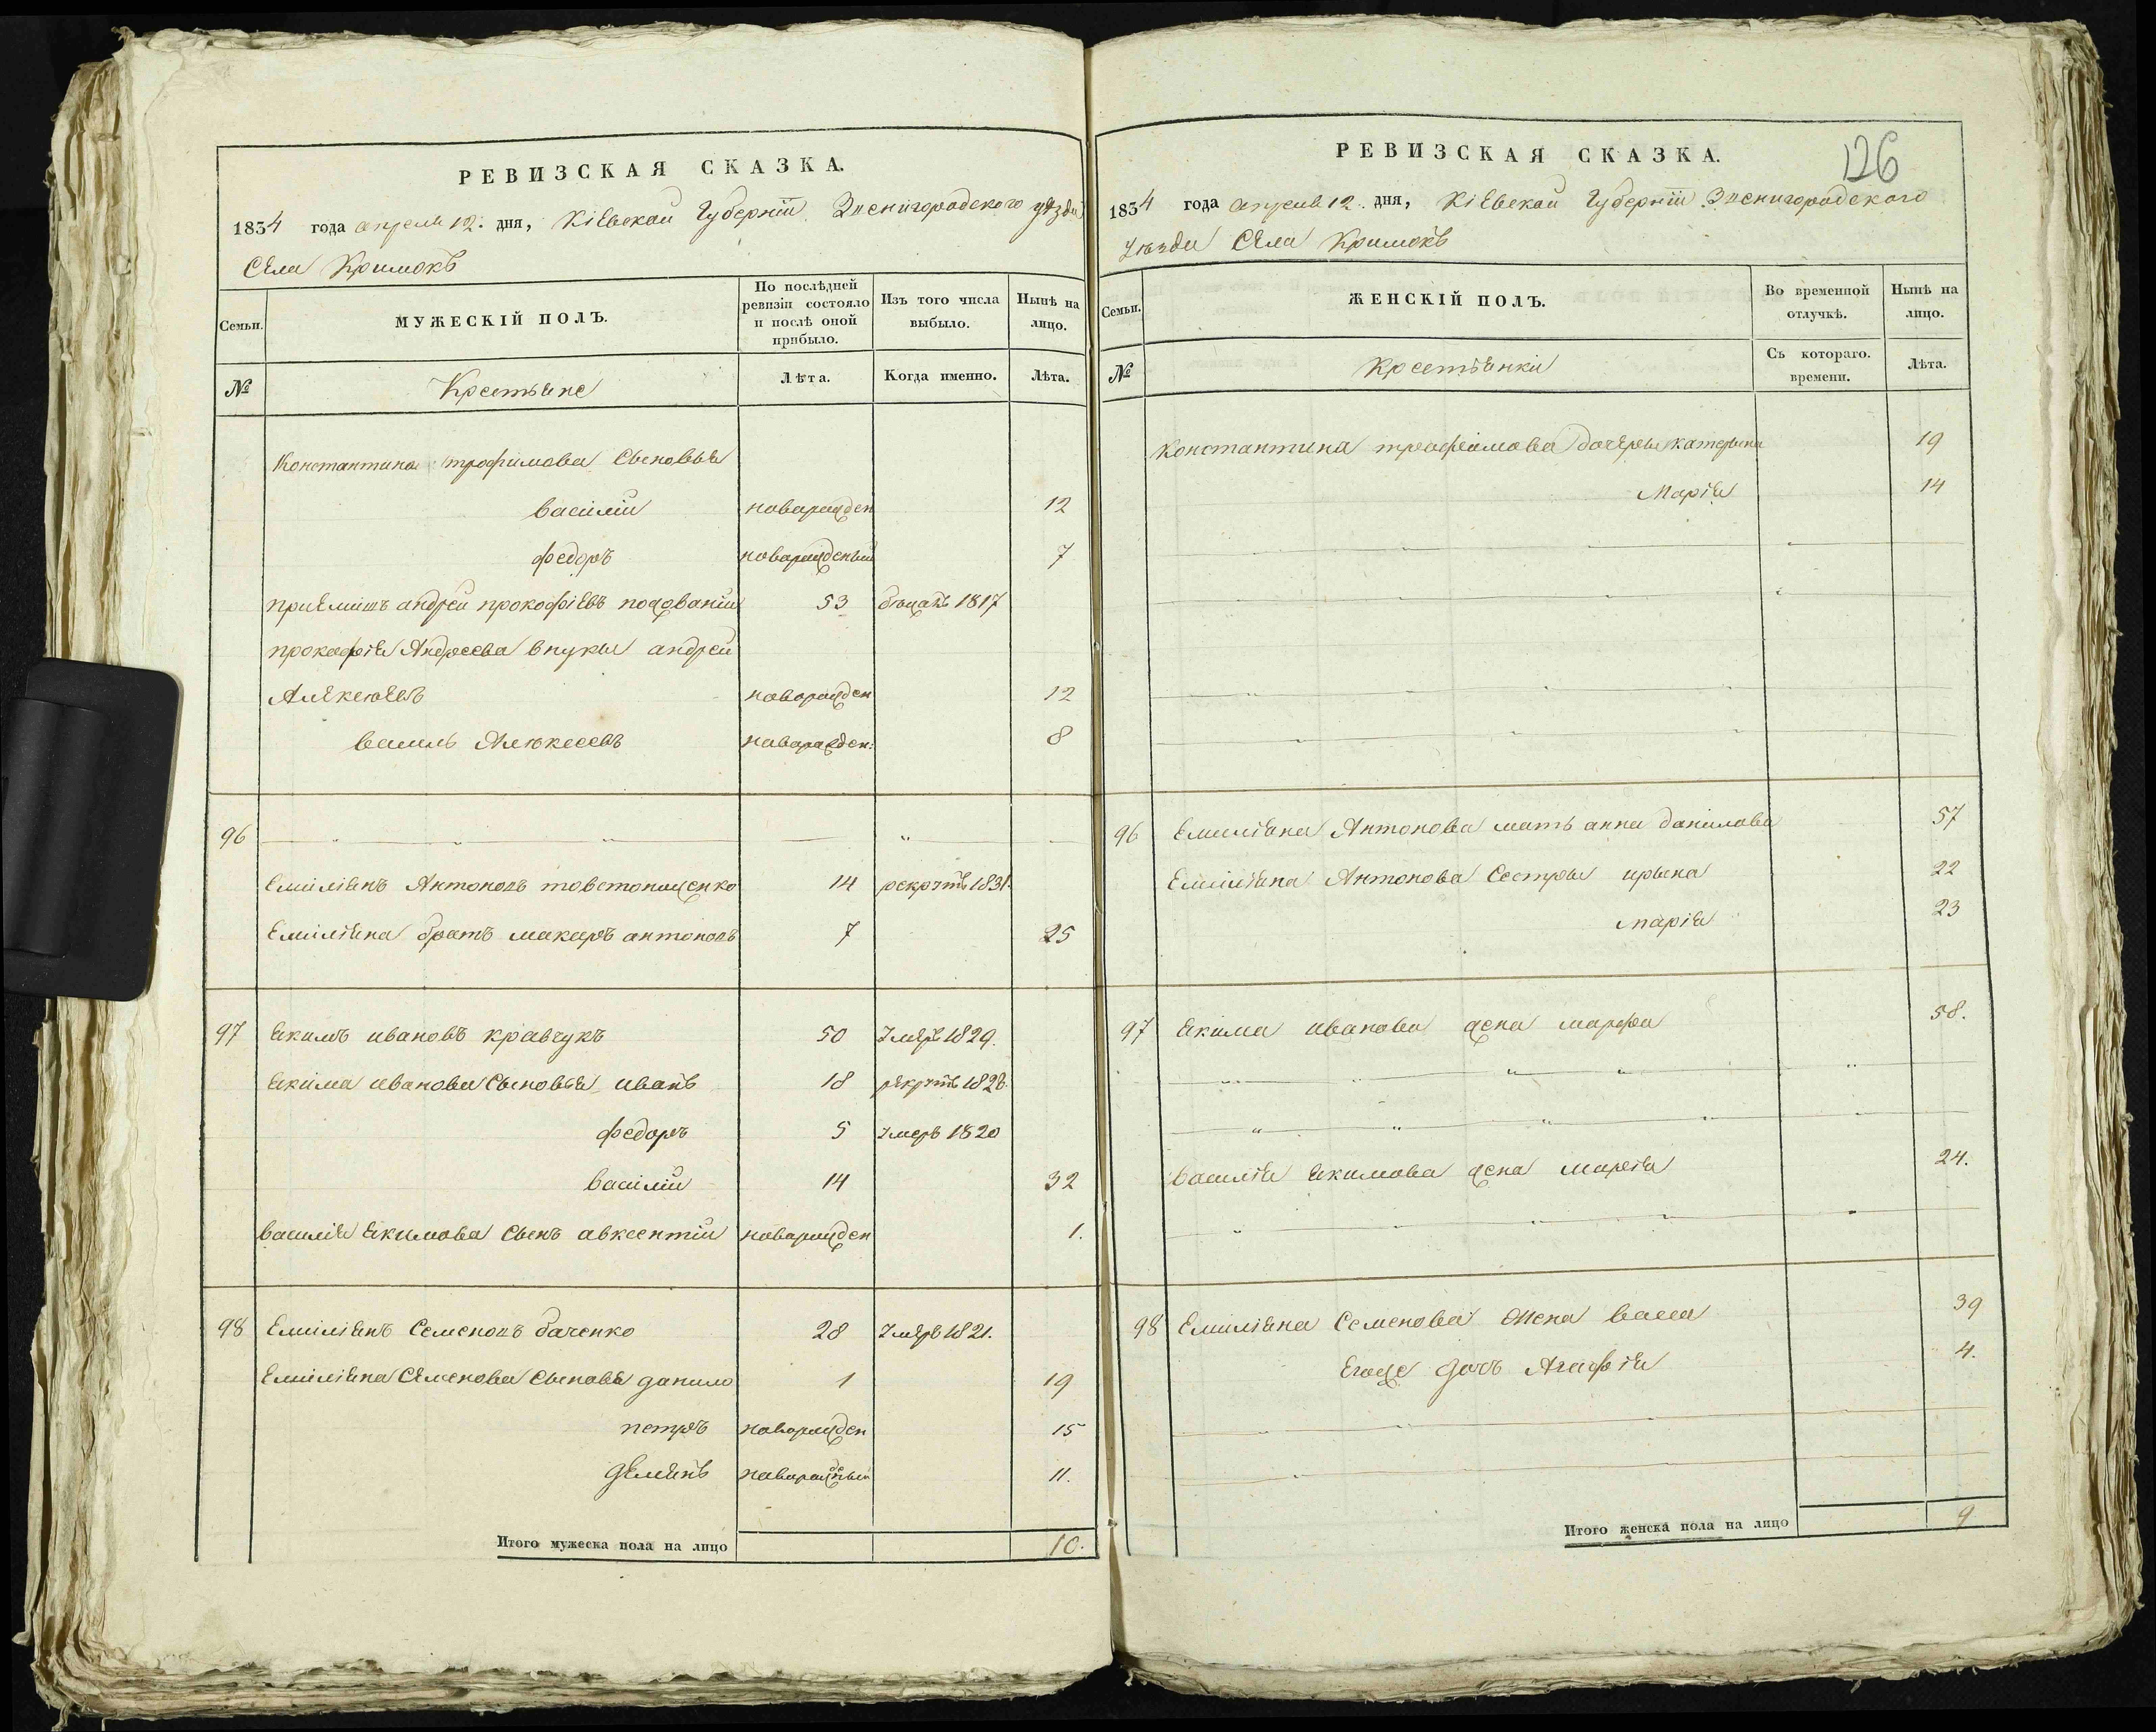 РЕВИЗСКАЯ СКАЗКА.
1834 года апреля 12. дня, Кіевской Губерніи Звенигородского уѣзда
Села Кримокъ
Семьи.
МУЖЕСКІЙ ПОЛЪ.
По послѣдней ревизіи состояло и послѣ оной прибыло.
Изъ того числа выбыло.
Нынѣ на лицо.
№
Крестьяне
Лѣта.
Когда именно.
Лѣта.
Константина трофимова Сыновья
василій новорожден 12
федоръ новорожденый 7
приемишъ андрей прокофіевъ 53 1817
прокофія Андреева внуки андрей
Алексеевъ новорожден 12
василь Алексеевъ новорожден: 8
96
Емиліянъ Антоновъ товстоноженко 14 рекрутъ 1831.
Емиліяна братъ макаръ антоновъ 7 25
97 Якимъ ивановъ кравчукъ 50 Умеръ 1829.
Якима иванова Сыновья иванъ 18 рекрутъ 1828.
федоръ 5 Умеръ 1820
василій 14 32
василія Якимова Сынъ авксентій новорожден 1.
98 Емиліянъ Семеновъ баченко 28 Умеръ 1821.
Емиліяна Семенова Сыновья данило 1 19
петръ новорожден 15
демянъ новорожденый 11.
Итого мужеска пола на лицо 10.
РЕВИЗСКАЯ СКАЗКА.
126
1834 года апреля 12. дня, Кіевской Губерніи Звенигородского
Уѣзда Села Кримокъ
Семьи.
ЖЕНСКІЙ ПОЛЪ.
Во временной отлучкѣ.
Нынѣ на лицо.
№
Крестьянки
Съ котораго. времени.
Лѣта.
Константина трофимова дочеры катерына 19
Марія 14
96 Емиліяна Антонова мать анна данилова 57
Емиліяна Антонова Сестры ирына 22
марія 23
97 Якима иванова жена марфа 58.
василія Якимова жена марія 24.
98 Емиліяна Семенова жена васса 39
Егоже дочь Агафія 4.
Итого женска пола на лицо 9